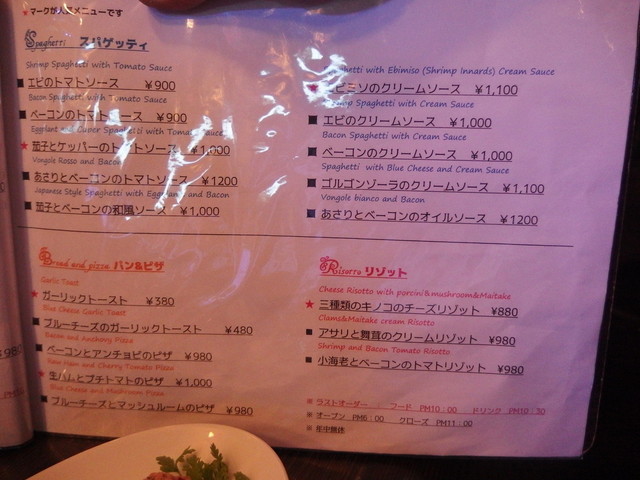 ★マークが人気メニューです
Spaghetti スパゲッティ
Shrimp Spaghetti with Tomato Sauce
■ エビのトマトソース ¥900
Bacon Spaghetti with Tomato Sauce
■ ベーコンのトマトソース ¥900
Eggplant and Caper Spaghetti with Tomato Sauce
★ 茄子とケッパーのトマトソース ¥1,000
Vongole Rosso and Bacon
■ あさりとベーコンのトマトソース ¥1200
Japanese Style Spaghetti with Eggplant and Bacon
■ 茄子とベーコンの和風ソース ¥1,000
Spaghetti with Ebimiso (Shrimp Innards) Cream Sauce
★ エビミソのクリームソース ¥1,100
Shrimp Spaghetti with Cream Sauce
■ エビのクリームソース ¥1,000
Bacon Spaghetti with Cream Sauce
■ ベーコンのクリームソース ¥1,000
Spaghetti with Blue Cheese and Cream Sauce
■ ゴルゴンゾーラのクリームソース ¥1,100
Vongole bianco and Bacon
■ あさりとベーコンのオイルソース ¥1200
Bread and pizza パン&ピザ
Garlic Toast
★ ガーリックトースト ¥380
Blue Cheese Garlic Toast
■ ブルーチーズのガーリックトースト ¥480
Bacon and Anchovy Pizza
■ ベーコンとアンチョビのピザ ¥980
Raw Ham and Cherry Tomato Pizza
★ 生ハムとプチトマトのピザ ¥1,000
Blue Cheese and Mushroom Pizza
■ ブルーチーズとマッシュルームのピザ ¥980
Risotto リゾット
Cheese Risotto with porcini&mushroom&Maitake
★ 三種類のキノコのチーズリゾット ¥880
Clams&Maitake cream Risotto
■ アサリと舞茸のクリームリゾット ¥980
Shrimp and Bacon Tomato Risotto
■ 小海老とベーコンのトマトリゾット ¥980
※ ラストオーダー フード PM10:00 ドリンク PM10:30
※ オープン PM6:00 クローズ PM11:00
※ 年中無休